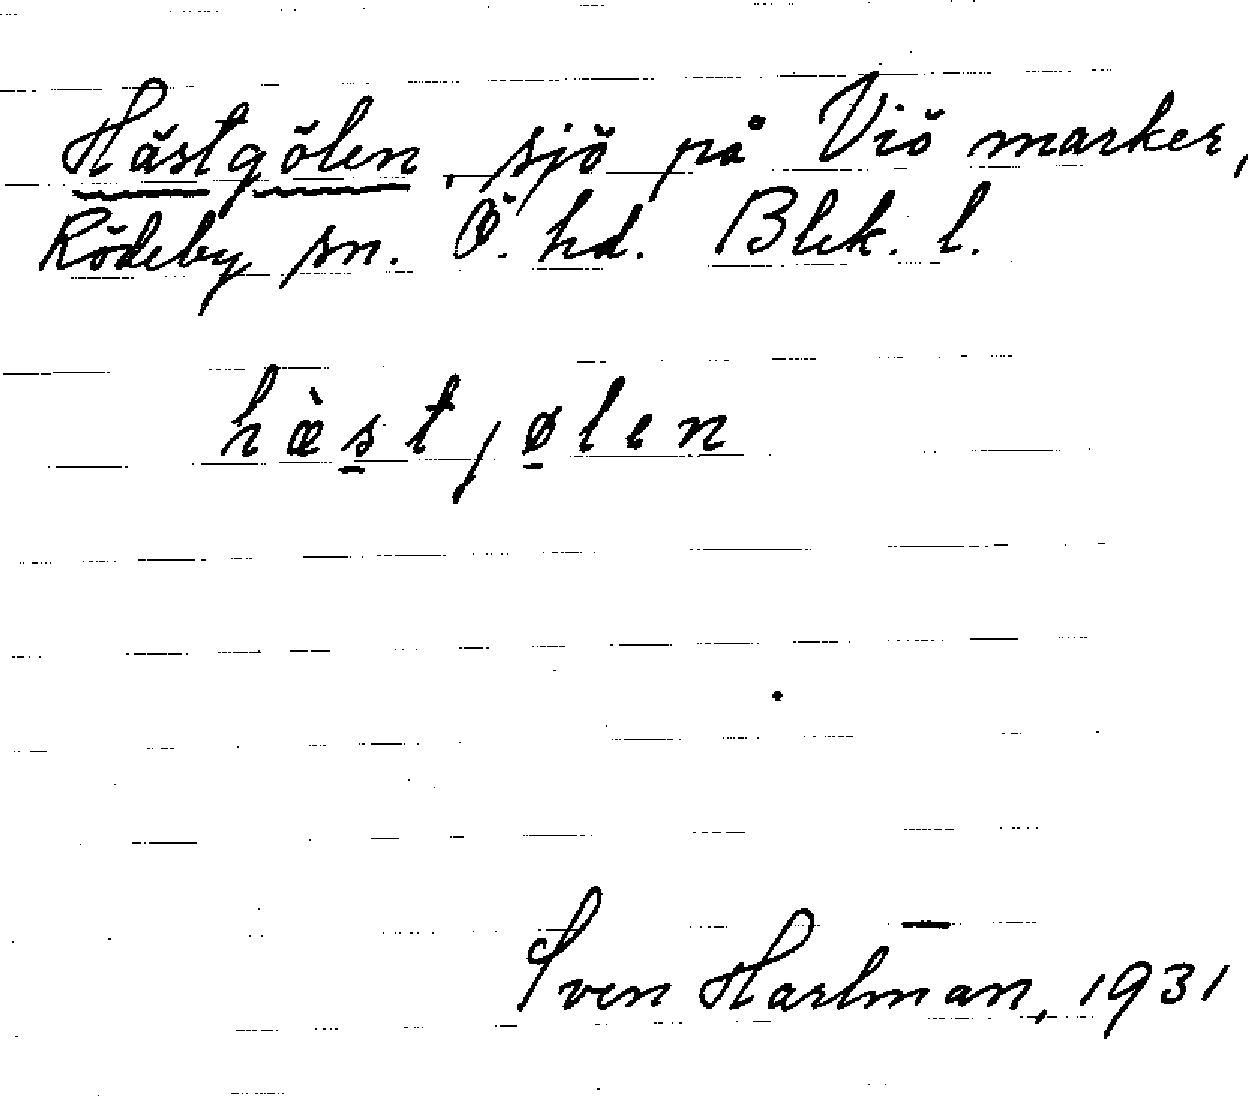 Hästgölen, sjö på Viö marker,
Rödeby sn. Ö. hd. Blek. l.
hæ̀stjølen
Sven Harlman, 1931